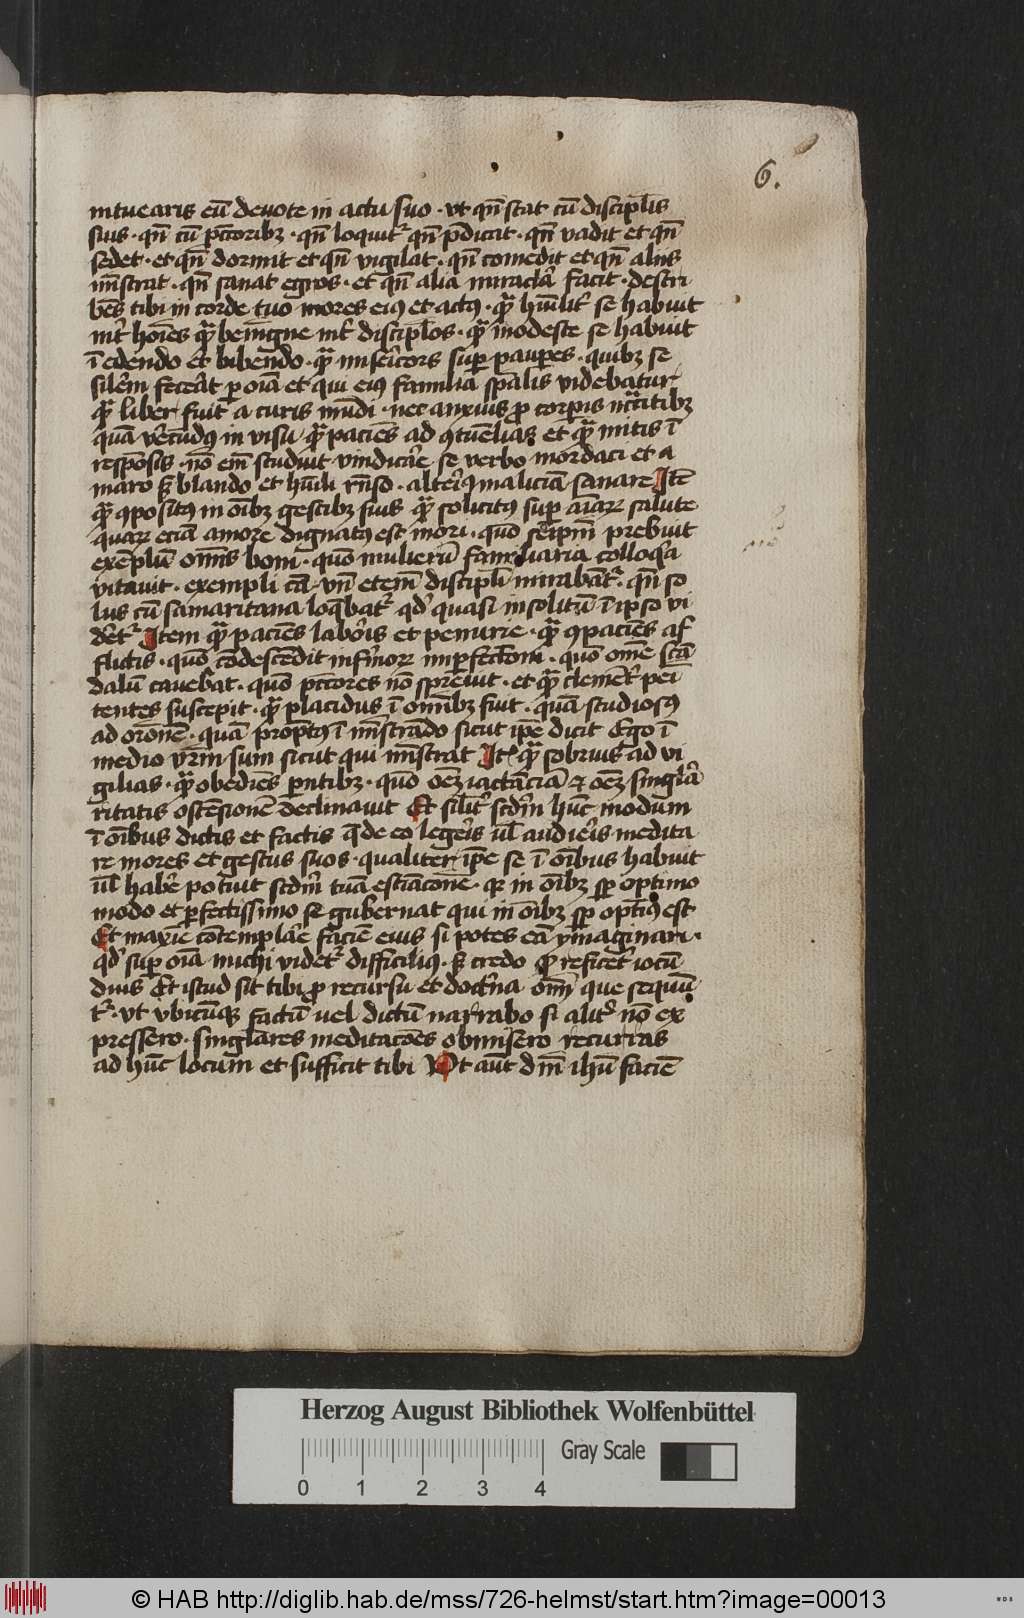 6.
intuearis eū deuote in actu suo · vt qn̄ stat cū discipl̄is
suis · qn̄ cū pc̄toribꝫ · qn̄ loquit᷑ qn̄ p̄dicat · qn̄ vadit et qn̄
sedet · et qn̄ dormit et qn̄ vigilat · qn̄ comedit et qn̄ aliis
mīstrat · qn̄ sanat egros · et qn̄ alia miracl̄a facit · descri
bēs tibi in corde tuo mores eiꝰ et actꝰ · qͣ hūilit᷑ se habuit
int̄ hoīes qͣ benigne int̄ discipl̄os · qͣ modeste se habuit
ī edendo et bibendo · qͣ mis̄icors suꝑ pauꝑes · quibꝫ se
silēm fecāt ꝑ oīa et qui eiꝰ familia sp̄alis videbatur
qͣ liber fuit a curis mūdi · nec anxius ꝓ corꝑis nc̄citibꝫ
quā vēcūdꝰ in visu qͣ paciēs ad ꝯtūelias et qͣ mitis ī
respōsis · nō em̄ studuit vindicāe se verbo mordaci et a
maro sꝫ blando et hūili rn̄so · altēiꝰ maliciā sanare Itē
qͣ ꝯpositꝰ in oībꝫ gestibꝫ suis qͣ solicitꝰ suꝑ aīaꝝ salute
quaꝝ eciā amore dignatꝰ est mori · quō seīpm̄ prebuit
exēplū om̄is boni · quō mulierū familiaria colloq̄a
vitauit · exempli cā · vn̄ etem̄ discipl̄i mirabāt᷑ · qn̄ so
lus cū samaritana loq̄bat᷑ qd̓ quasi insolitū ī ipso vi
det᷑ Item qͣ paciēs labōis et penurie · qͣ ꝯpaciēs af
flictis · quō cōdescēdit infīmoꝝ imꝑfectōni · quō ōme scā
dalū cauebat · quō pc̄tores nō spreuit · et qͣ clemēt᷑ pei
tentes suscepit · qͣ placidus ī om̄ibꝫ fuit · quā studiosꝰ
ad orōnē · quā promptꝰ ī mīstrādo sicut ip̄e dicit Ego ī
medio vr̄m sum sicut qui mīstrat It̄ qͣ sobrius ad vi
gilias · qͣ obediēs pn̄tibꝫ · quō oēꝫ iactāciā et oēꝫ singl̄a
ritatis ostēsionē declinauit Et sil̄it᷑ scdm̄ hūc modum
ī oībus dictis et factis q̄ de eo legeīs ul̄ audieīs medita
re mores et gestus suos · qualiter ip̄e se ī oībus habuit
ul̄ habē potuit scdm̄ tuā estīacōne · qꝛ in oībꝫ sꝑ optimo
modo et ꝑfectissimo se gubernat qui in oībꝫ sꝑ optīꝰ est
Et maxīe cōtemplāe faciē eius si potes eā ymaginari ·
qd̓ suꝑ oīa michi videt᷑ difficiliꝰ · sꝫ credo ꝙ reficet iocū
dius Et istud sit tibi ꝓ recursu et doctīna oīm que sequū
t᷑ · vt vbicūqꝫ factū uel dictū narrabo si alit᷑ nō ex
pressero · singlares meditacōes ob misero recurras
ad hūc locum et sufficit tibi Vt aūt dn̄m ihū faciē
Herzog August Bibliothek Wolfenbüttel
Gray Scale
0 1 2 3 4
© HAB http://diglib.hab.de/mss/726-helmst/start.htm?image=00013